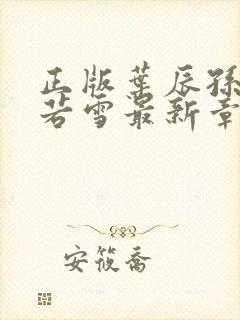 正版叶辰孙
若雪最新章
安筱乔